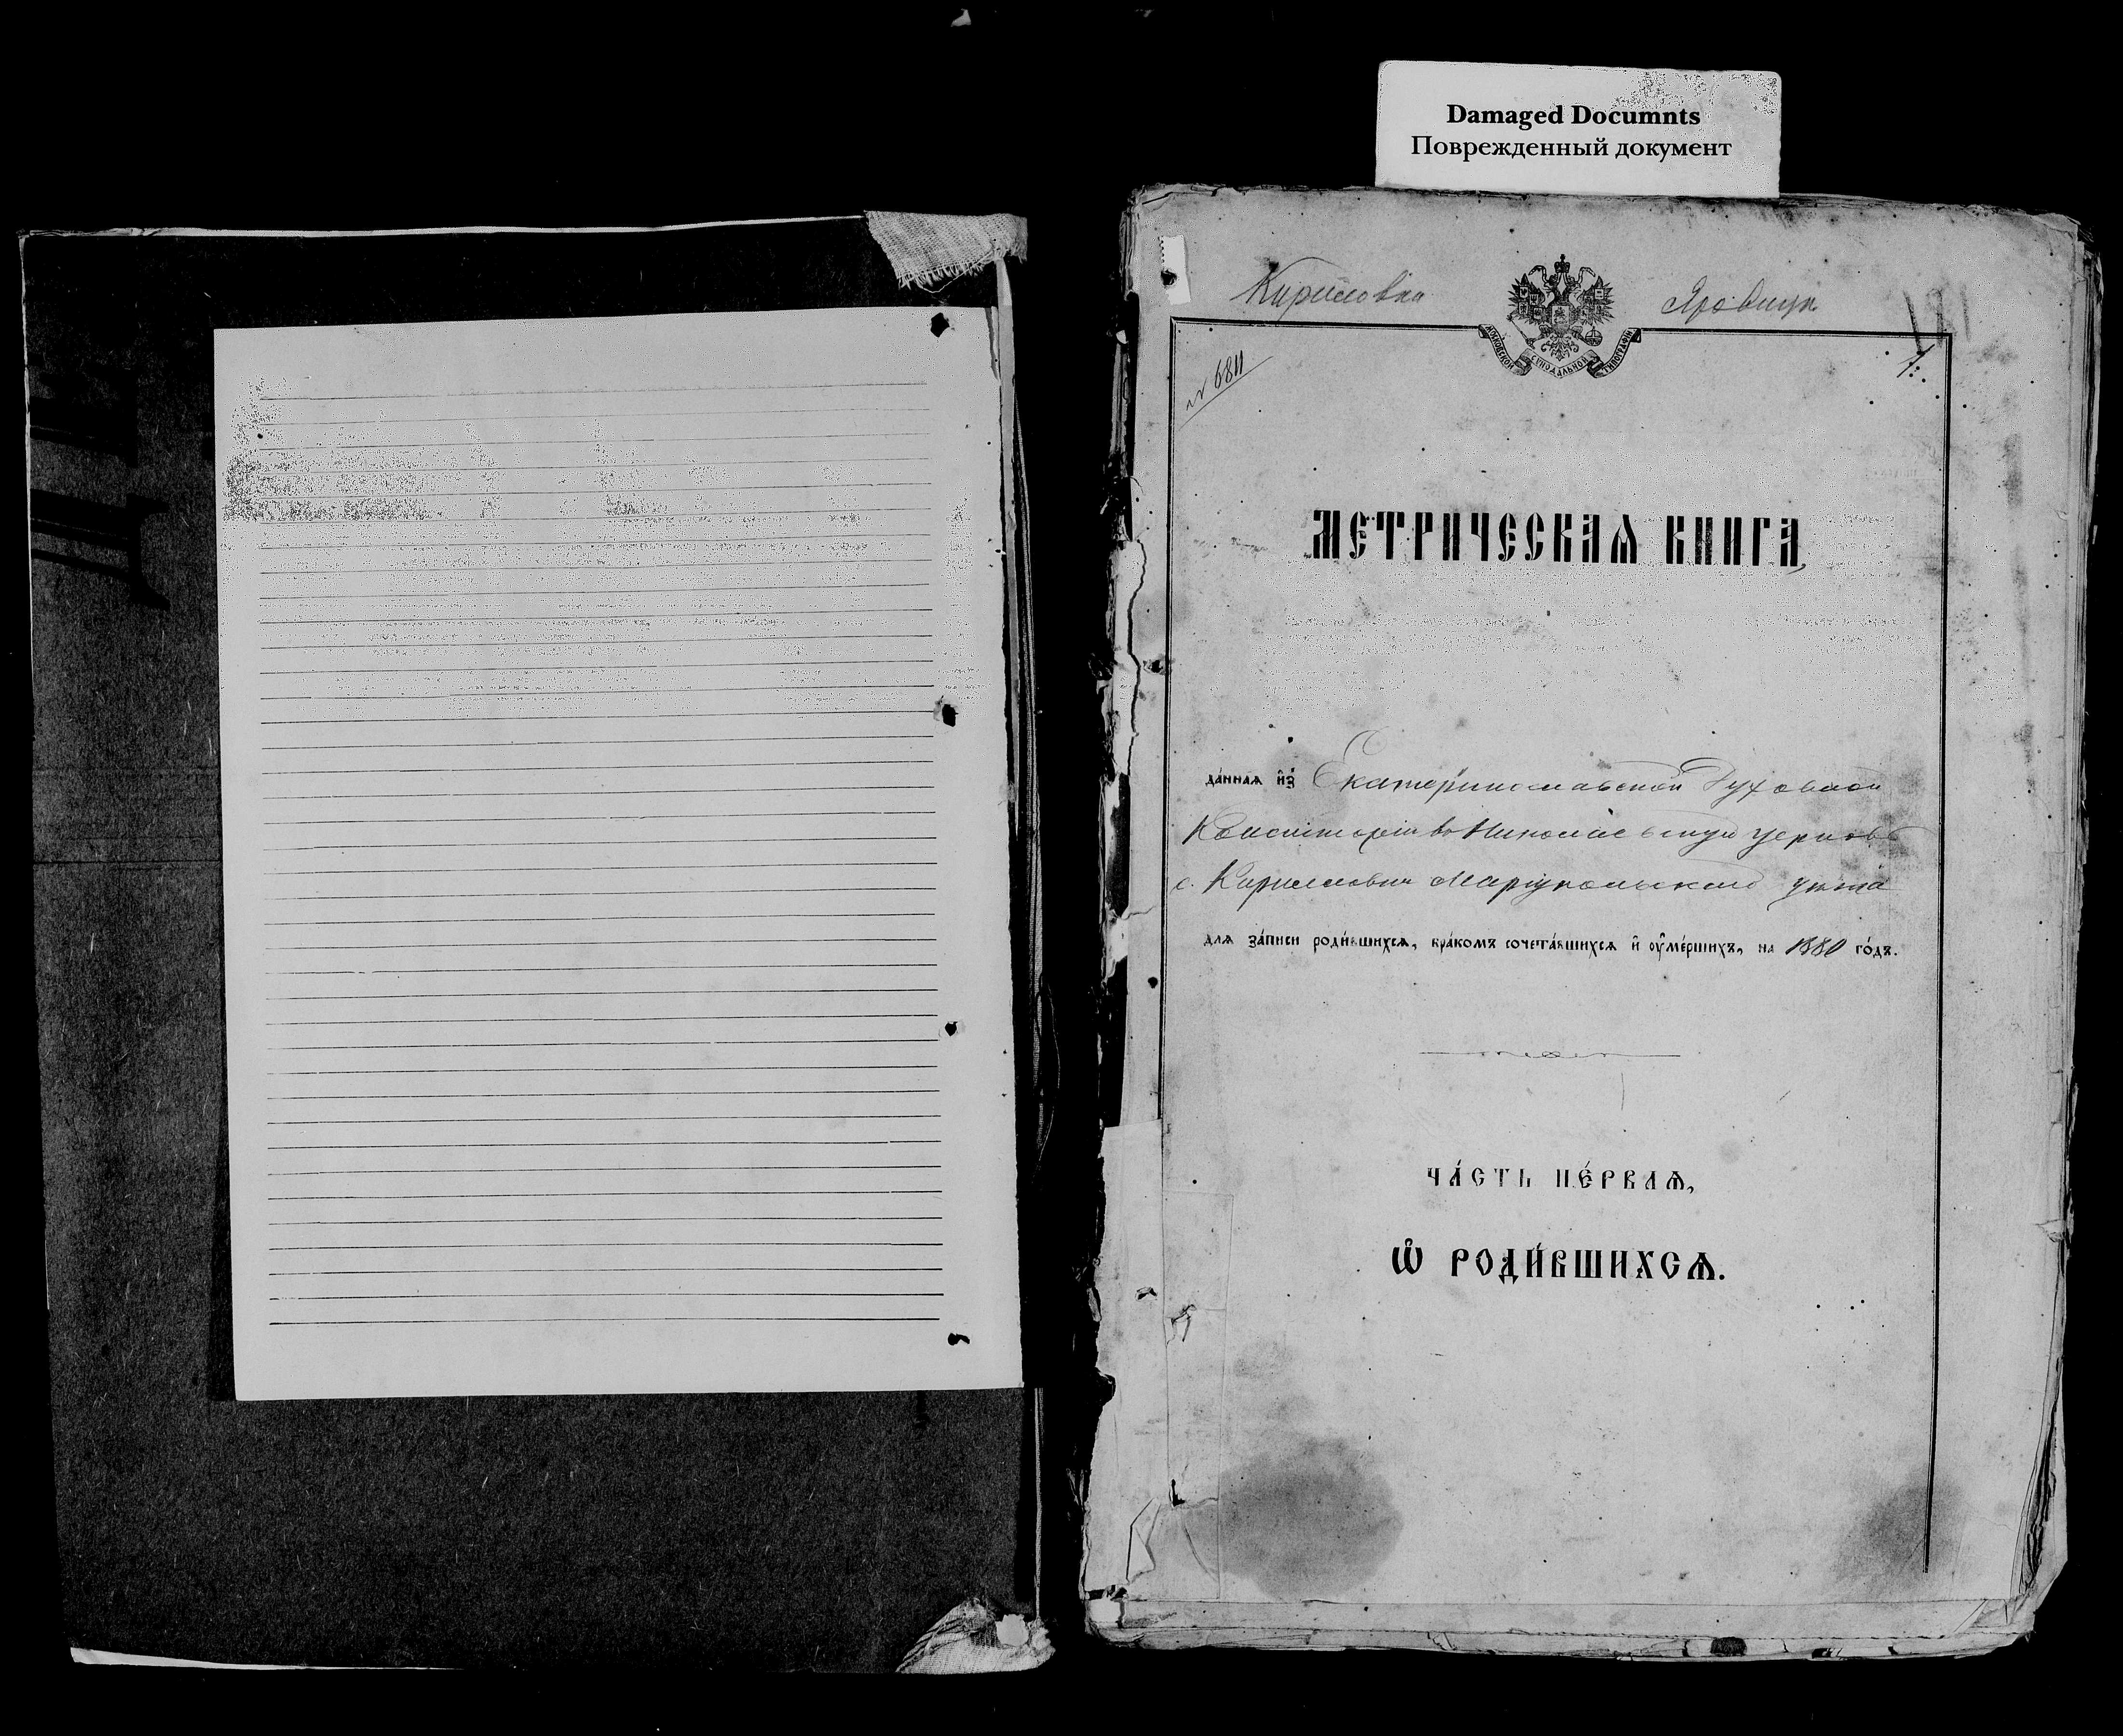 Damaged Documnts
Поврежденный документ
Кирилловка
№ 6811
1.
МОСКОВСКОЙ СѴНОДАЛЬНОЙ ТИПОГРАФІИ
МЕТРИЧЕСКАѦ КНИГА,
да́ннаѧ и҆з̾ Екатеринославской Духовной
Консисторіи въ Николаевскую церковь
с. Кирилловки Маріупольскаго уѣзда
длѧ за́писи роди́вшихсѧ, бра́комъ сочета́вшихсѧ и҆ ᲂу҆ме́ршихъ, на 1880 го́дъ.
ЧА́СТЬ ПЕ́РВАѦ,
Ѽ РОДИ́ВШИХСѦ.